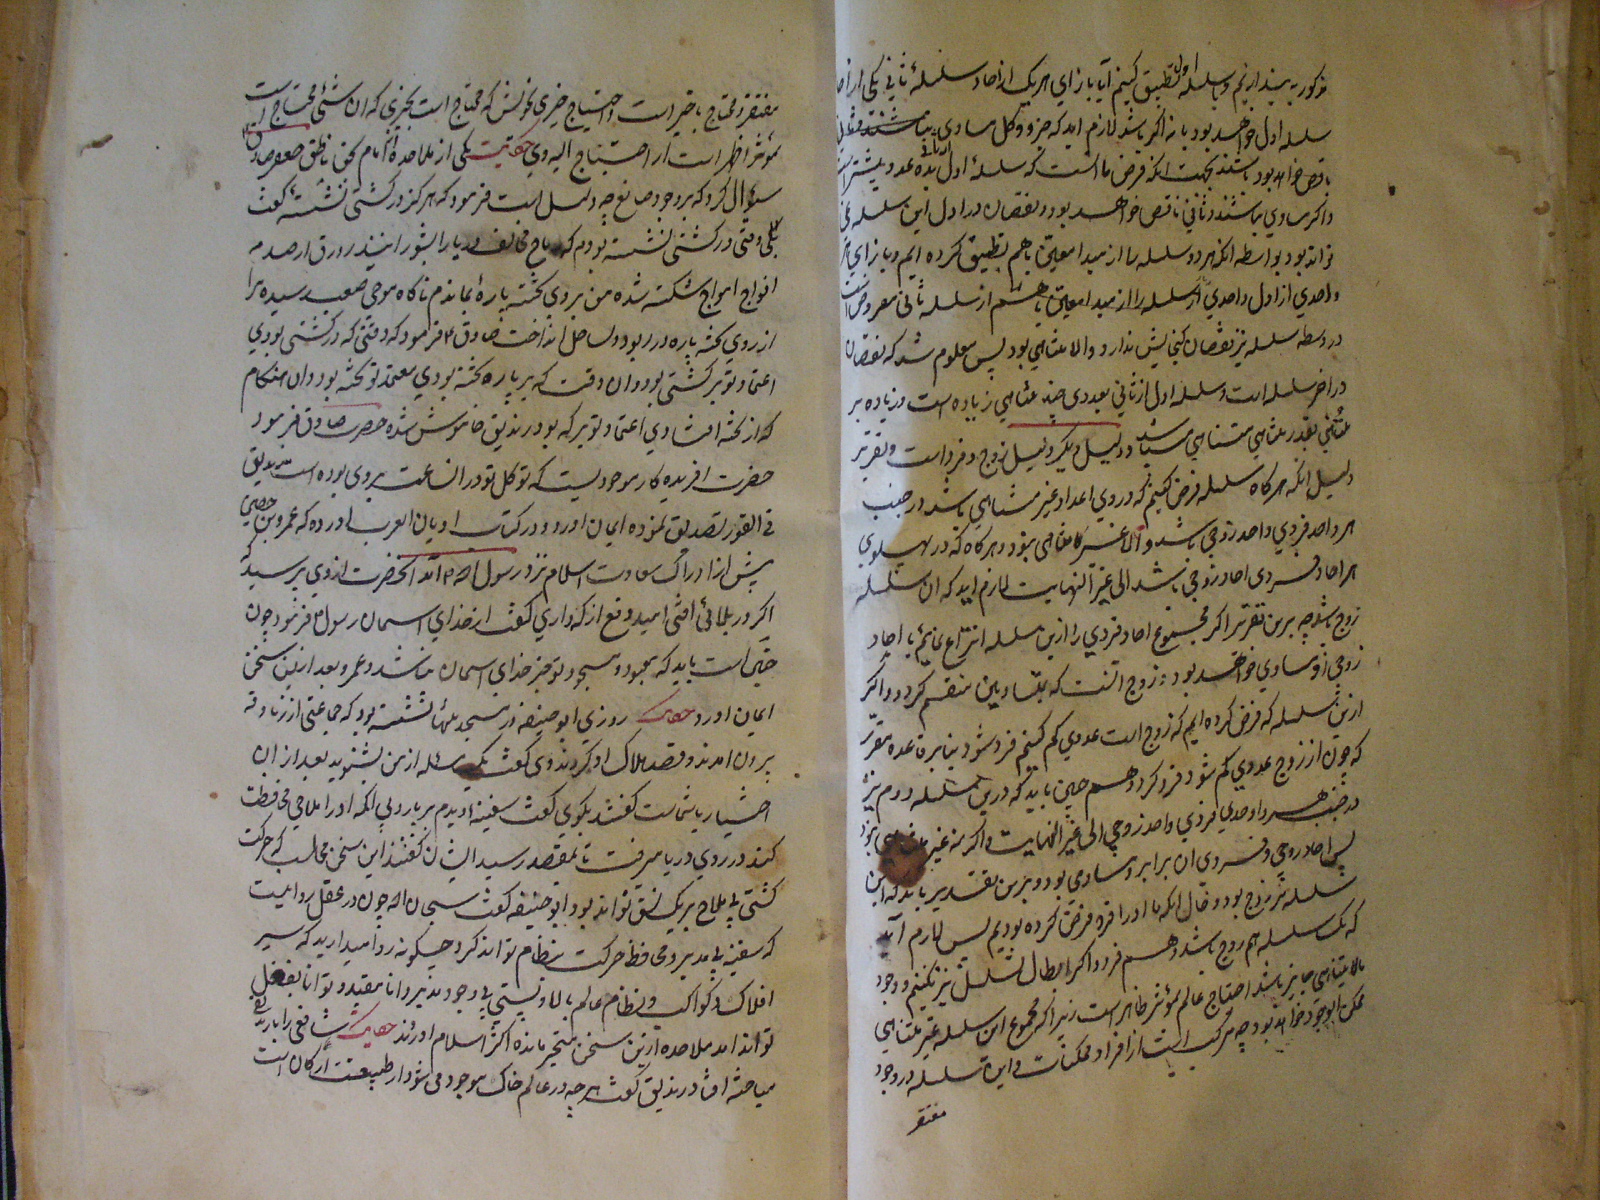 مذکور به بینداریم و سلسله اول تطبیق کنیم آیا بازای هر یک از احاد سلسلهٔ ثانی یکی از احاد
سلسله اول خواهد بود یا نه اگر باشد لازم اید که جزو و کل مساوی باشند
ناقص خواهد بود باشند بجهت انکه فرض ما است که سلسلهٔ اول از ثانی بده عدد بیشتر است
و اگر مساوی نباشند ثانی ناقص خواهد بود و نقصان در اول این سلسله
نواند بود بواسطه انکه هر دو سلسله را از مبدا معین با هم تطبیق کرده ایم و بازای هر
واحدی از اول واحدی از سلسله را از مبدا معین از سلسله ثانی مفروض است
در وسط سلسله نیز نقصان کنجایش ندارد و الا متناهی بود پس معلوم شد که نقصان
در اخر سلسله است و سلسله اول از ثانی بعددی چند متناهی زیاده است و زیاده بر
متناهی بقدر متناهی متناهی باشد و دلیل دیکر دلیل زوج و فرد است و تقریر
دلیل انکه هر کاه سلسله فرض کنیم که در وی اعداد غیر متناهی باشد در جنب
هر واحد فردی واحد زوجی باشد و الا غیر متناهی نبود و هر کاه که در پهلوی
هر احاد فردی احاد زوجی باشد الی غیر النهایت لازم اید که ان سلسله
زوج شود چه برین تقریر اکر مجموع احاد فردی را ازین سلسله انتزاع نمائیم با احاد
زوجی او مساوی خواهد بود و زوج انست که بمتساویین منقسم کردد و اکر
ازین سلسله که فرض کرده ایم که زوج است عددی کم کنیم فرد شود بنابر قاعده مقرر
که چون از زوج عددی کم شود فرد کردد و هم چنین باید که درین سلسله دوم نیز
در جنب هر واحدی فردی واحد زوجی الی غیر النهایت و اکر نه غیر متناهی نبود
پس احاد زوجی و فردی ان برابر و مساوی بود و برین تقدیر باید که این
سلسله نیز زوج بود و قال انکه ما او را فرد فرض کرده بودیم پس لازم آید
که یک سلسله هم زوج باشد و هم فرد و اکر ابطال تسلسل نیز نکنیم و وجود
مالا یتناهی جایز باشد احتیاج عالم بمؤثر ظاهر است زیرا که مجموع این سلسله غیر متناهی
ممکن الوجود خواهد بود چه مرکب است از افراد ممکنات و این سلسله در وجود
مفتقر
مفتقر و محتاج باخیر است و احتیاج خیری بخودش که محتاج است بچیزی که ان شئ محتاج است
بمؤثر اظهر است از احتیاج الیه وی حکایت یکی از ملاحده از امام بحق ناطق جعفر صادق
سؤال کرد که بر وجود صانع چه دلیل است فرمود که هرکز در کشتی نشستهٔ گفت
بلی وقتی در کشتی نشسته بودم که ریاح مخالف دریا را بشور انید و زورق از صدمه
افواج امواج شکسته شده من بر روی تخته پارهٔ بماندم ناکاه موجی صعب رسید مرا
از روی تخته پاره در ربود و بساحل انداخت صادق ع فرمود که وقتی که در کشتی بودی
اعتماد تو بر کشتی بود و ان وقت که بر پاره تخته بودی معتمد تو تخته بود و ان هنکام
که از تخته افتادی اعتماد تو بر که بود زندیق خاموش شده حضرت صادق فرمود
حضرت افریده کار موجودیست که توکل تو در ان ساعت بر وی بوده است زندیق
فی الفور تصدیق نموده ایمان اورد و در کتاب ادیان العرب اورده که عمرو بن حصین
پیش از ادراک سعادت اسلام نزد رسول الله ص آمد انحضرت از وی پرسید که
اکر در بلائی افتی امید دفع از که داری گفت از خدای اسمان رسول ص فرمود چون
چنین است باید که معبود و مسجود تو جز خدای اسمان نباشد و عمرو بعد ازین سخن
ایمان اورد حکایت روزی ابو حنیفه در مسجد تنها نشسته بود که جماعتی از زنادقه
برون امدند و قصد هلاک او کردند وی گفت یک مسئله از من بشنوید بعد از ان
اختیار با شماست گفتند بکوی گفت سفینهٔ دیدم پر بار و بی انکه او را ملاحی محافظت
کند در روی دریا میرفت تا بمقصد رسید ایشان گفتند این سخن محالست که حرکت
کشتی بی ملاح بر یک نسق تواند بود ابو حنیفه گفت سبحان الله چون در عقل روا نیست
که سفینه بی مدبر و محافظ حرکت بنظام تواند کرد چکونه روا میدارید که سیر
افلاک و کواکب و نظام عالم بالا و پستی بی وجود مدبر دانا مقید و توانا بفعل
تواند امد ملاحده ازین سخن متحیر مانده اکثر اسلام اوردند حکایت شافعی را با زندیقی
مباحثه افتاد زندیق گفت هر چه در عالم خاک موجود می شود از طبیعت ارکان است